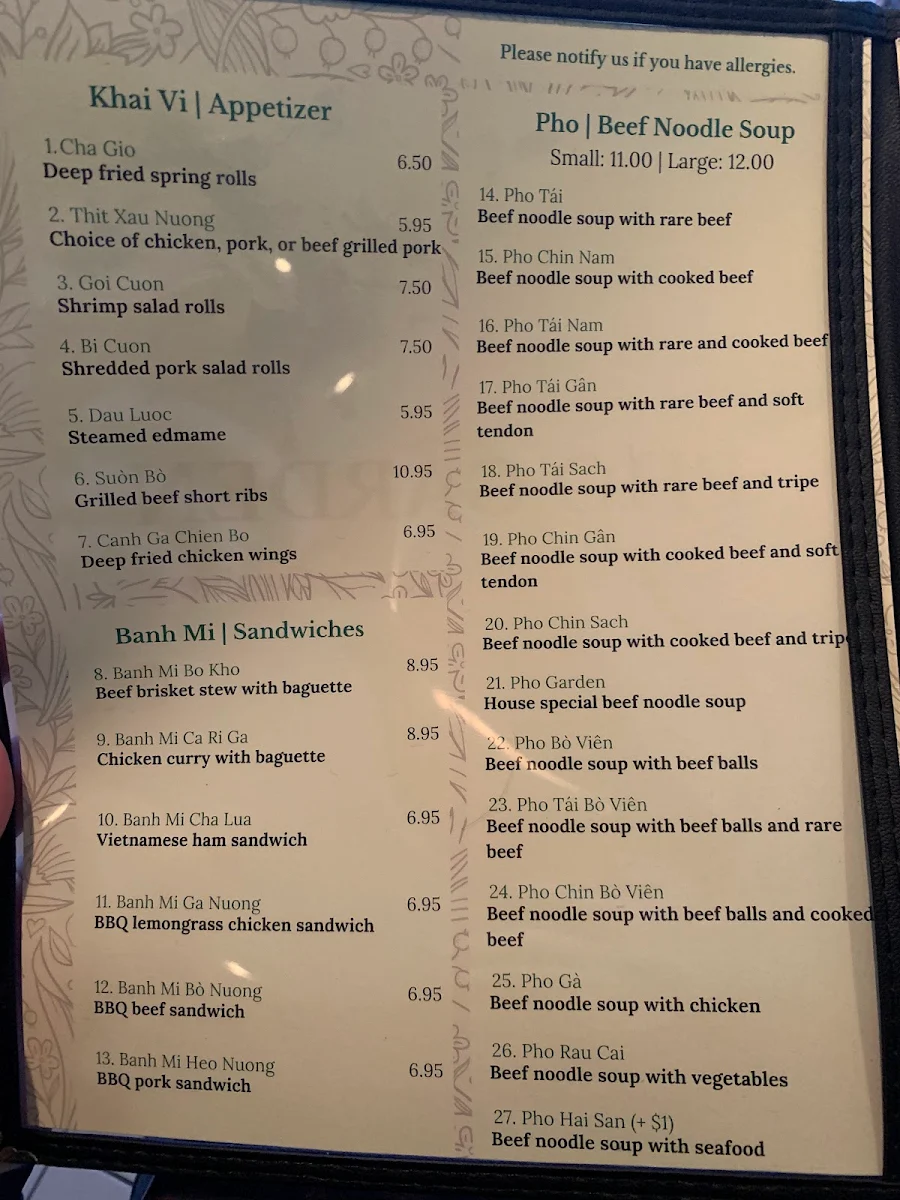 Khai Vi | Appetizer
1.Cha Gio
6.50
Deep fried spring rolls
2. Thit Xau Nuong
5.95
Choice of chicken, pork, or beef grilled pork
3. Goi Cuon
7.50
Shrimp salad rolls
4. Bi Cuon
7.50
Shredded pork salad rolls
5. Dau Luoc
5.95
Steamed edmame
6. Suòn Bò
10.95
Grilled beef short ribs
7. Canh Ga Chien Bo
6.95
Deep fried chicken wings
Banh Mi | Sandwiches
8. Banh Mi Bo Kho
8.95
Beef brisket stew with baguette
9. Banh Mi Ca Ri Ga
8.95
Chicken curry with baguette
10. Banh Mi Cha Lua
6.95
Vietnamese ham sandwich
11. Banh Mi Ga Nuong
6.95
BBQ lemongrass chicken sandwich
12. Banh Mi Bò Nuong
6.95
BBQ beef sandwich
13. Banh Mi Heo Nuong
6.95
BBQ pork sandwich
Please notify us if you have allergies.
Pho | Beef Noodle Soup
Small: 11.00 | Large: 12.00
14. Pho Tái
Beef noodle soup with rare beef
15. Pho Chin Nam
Beef noodle soup with cooked beef
16. Pho Tái Nam
Beef noodle soup with rare and cooked beef
17. Pho Tái Gân
Beef noodle soup with rare beef and soft
tendon
18. Pho Tái Sach
Beef noodle soup with rare beef and tripe
19. Pho Chin Gân
Beef noodle soup with cooked beef and soft
tendon
20. Pho Chin Sach
Beef noodle soup with cooked beef and trip
21. Pho Garden
House special beef noodle soup
22. Pho Bò Viên
Beef noodle soup with beef balls
23. Pho Tái Bò Viên
Beef noodle soup with beef balls and rare
beef
24. Pho Chin Bò Viên
Beef noodle soup with beef balls and cooked
beef
25. Pho Gà
Beef noodle soup with chicken
26. Pho Rau Cai
Beef noodle soup with vegetables
27. Pho Hai San (+ $1)
Beef noodle soup with seafood